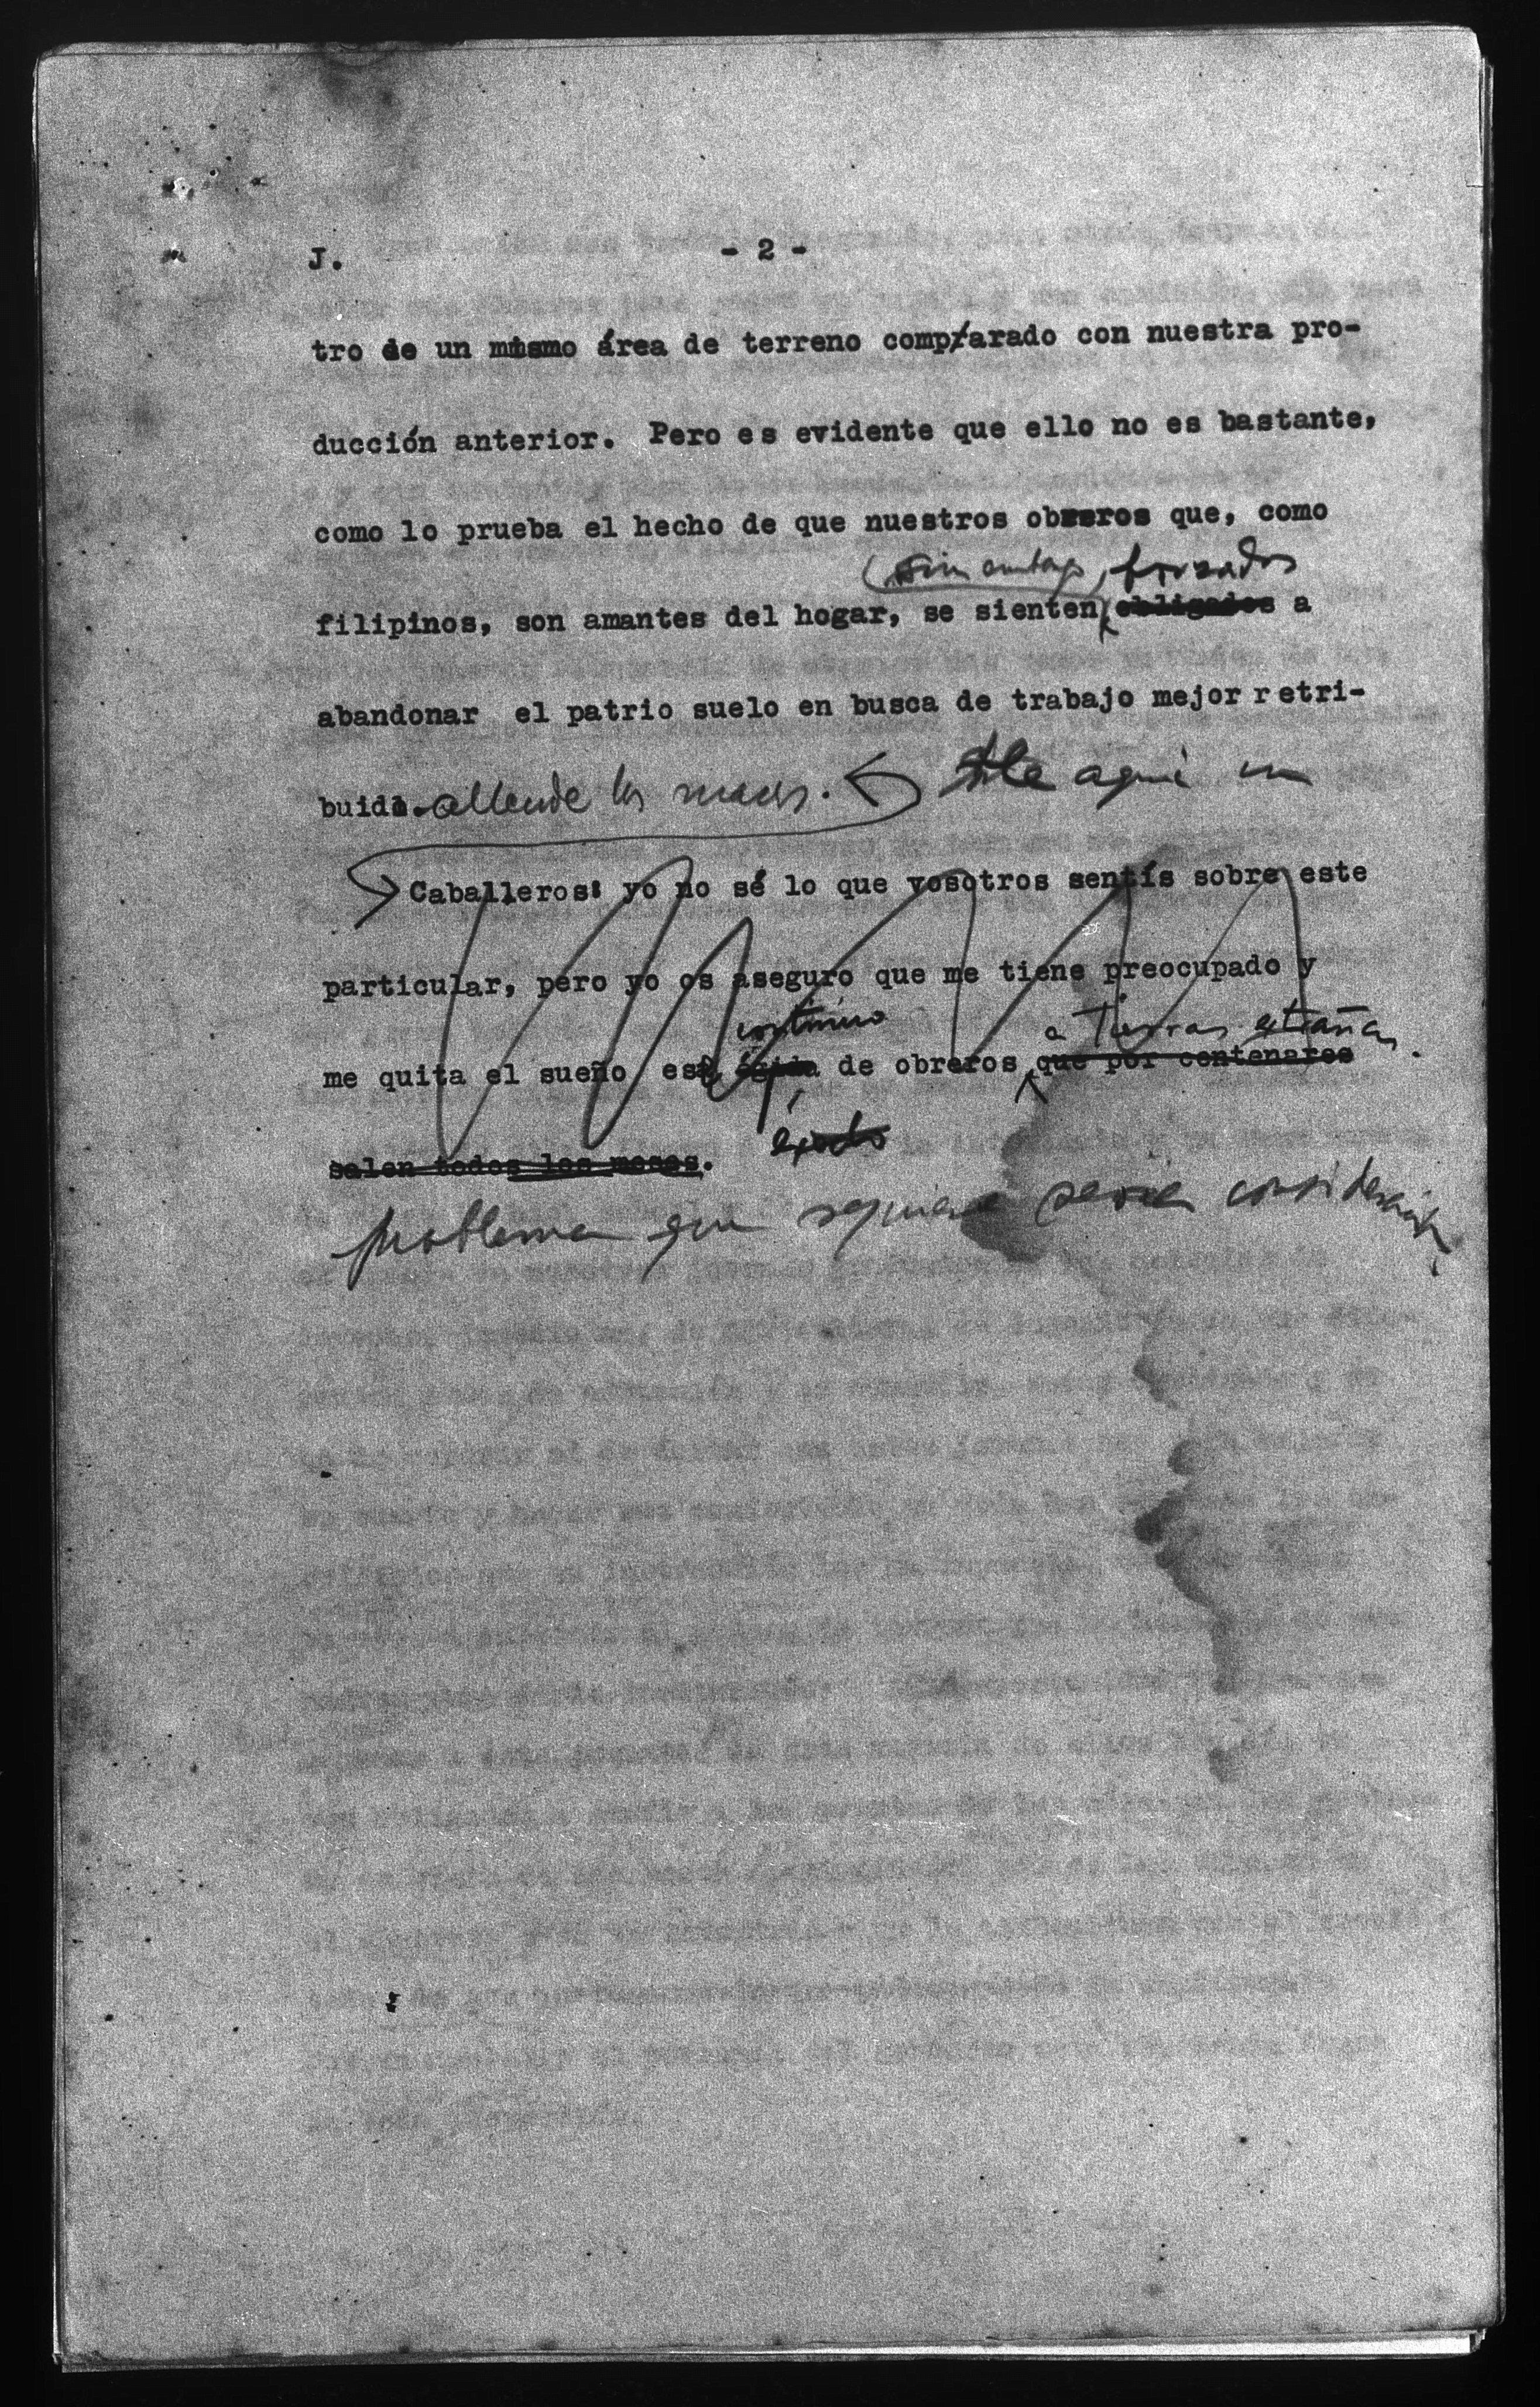 J. - 2 -
tro de un mismo área de terreno comparado con nuestra pro-
ducción anterior. Pero es evidente que ello no es bastante,
como lo prueba el hecho de que nuestros obreros que, como
(sin embargo, forzados
filipinos, son amantes del hogar, se sienten obligados a
abandonar el patrio suelo en busca de trabajo mejor retri-
buido. allende los mares. He aqui un
Caballeros: yo no sé lo que vosotros sentís sobre este
particular, pero yo os aseguro que me tiene preocupado y
continuo a tierras extrañas.
me quita el sueño ese de obreros que por centenares
éxodo
salen todos los meses.
problema que requiere seria consideración